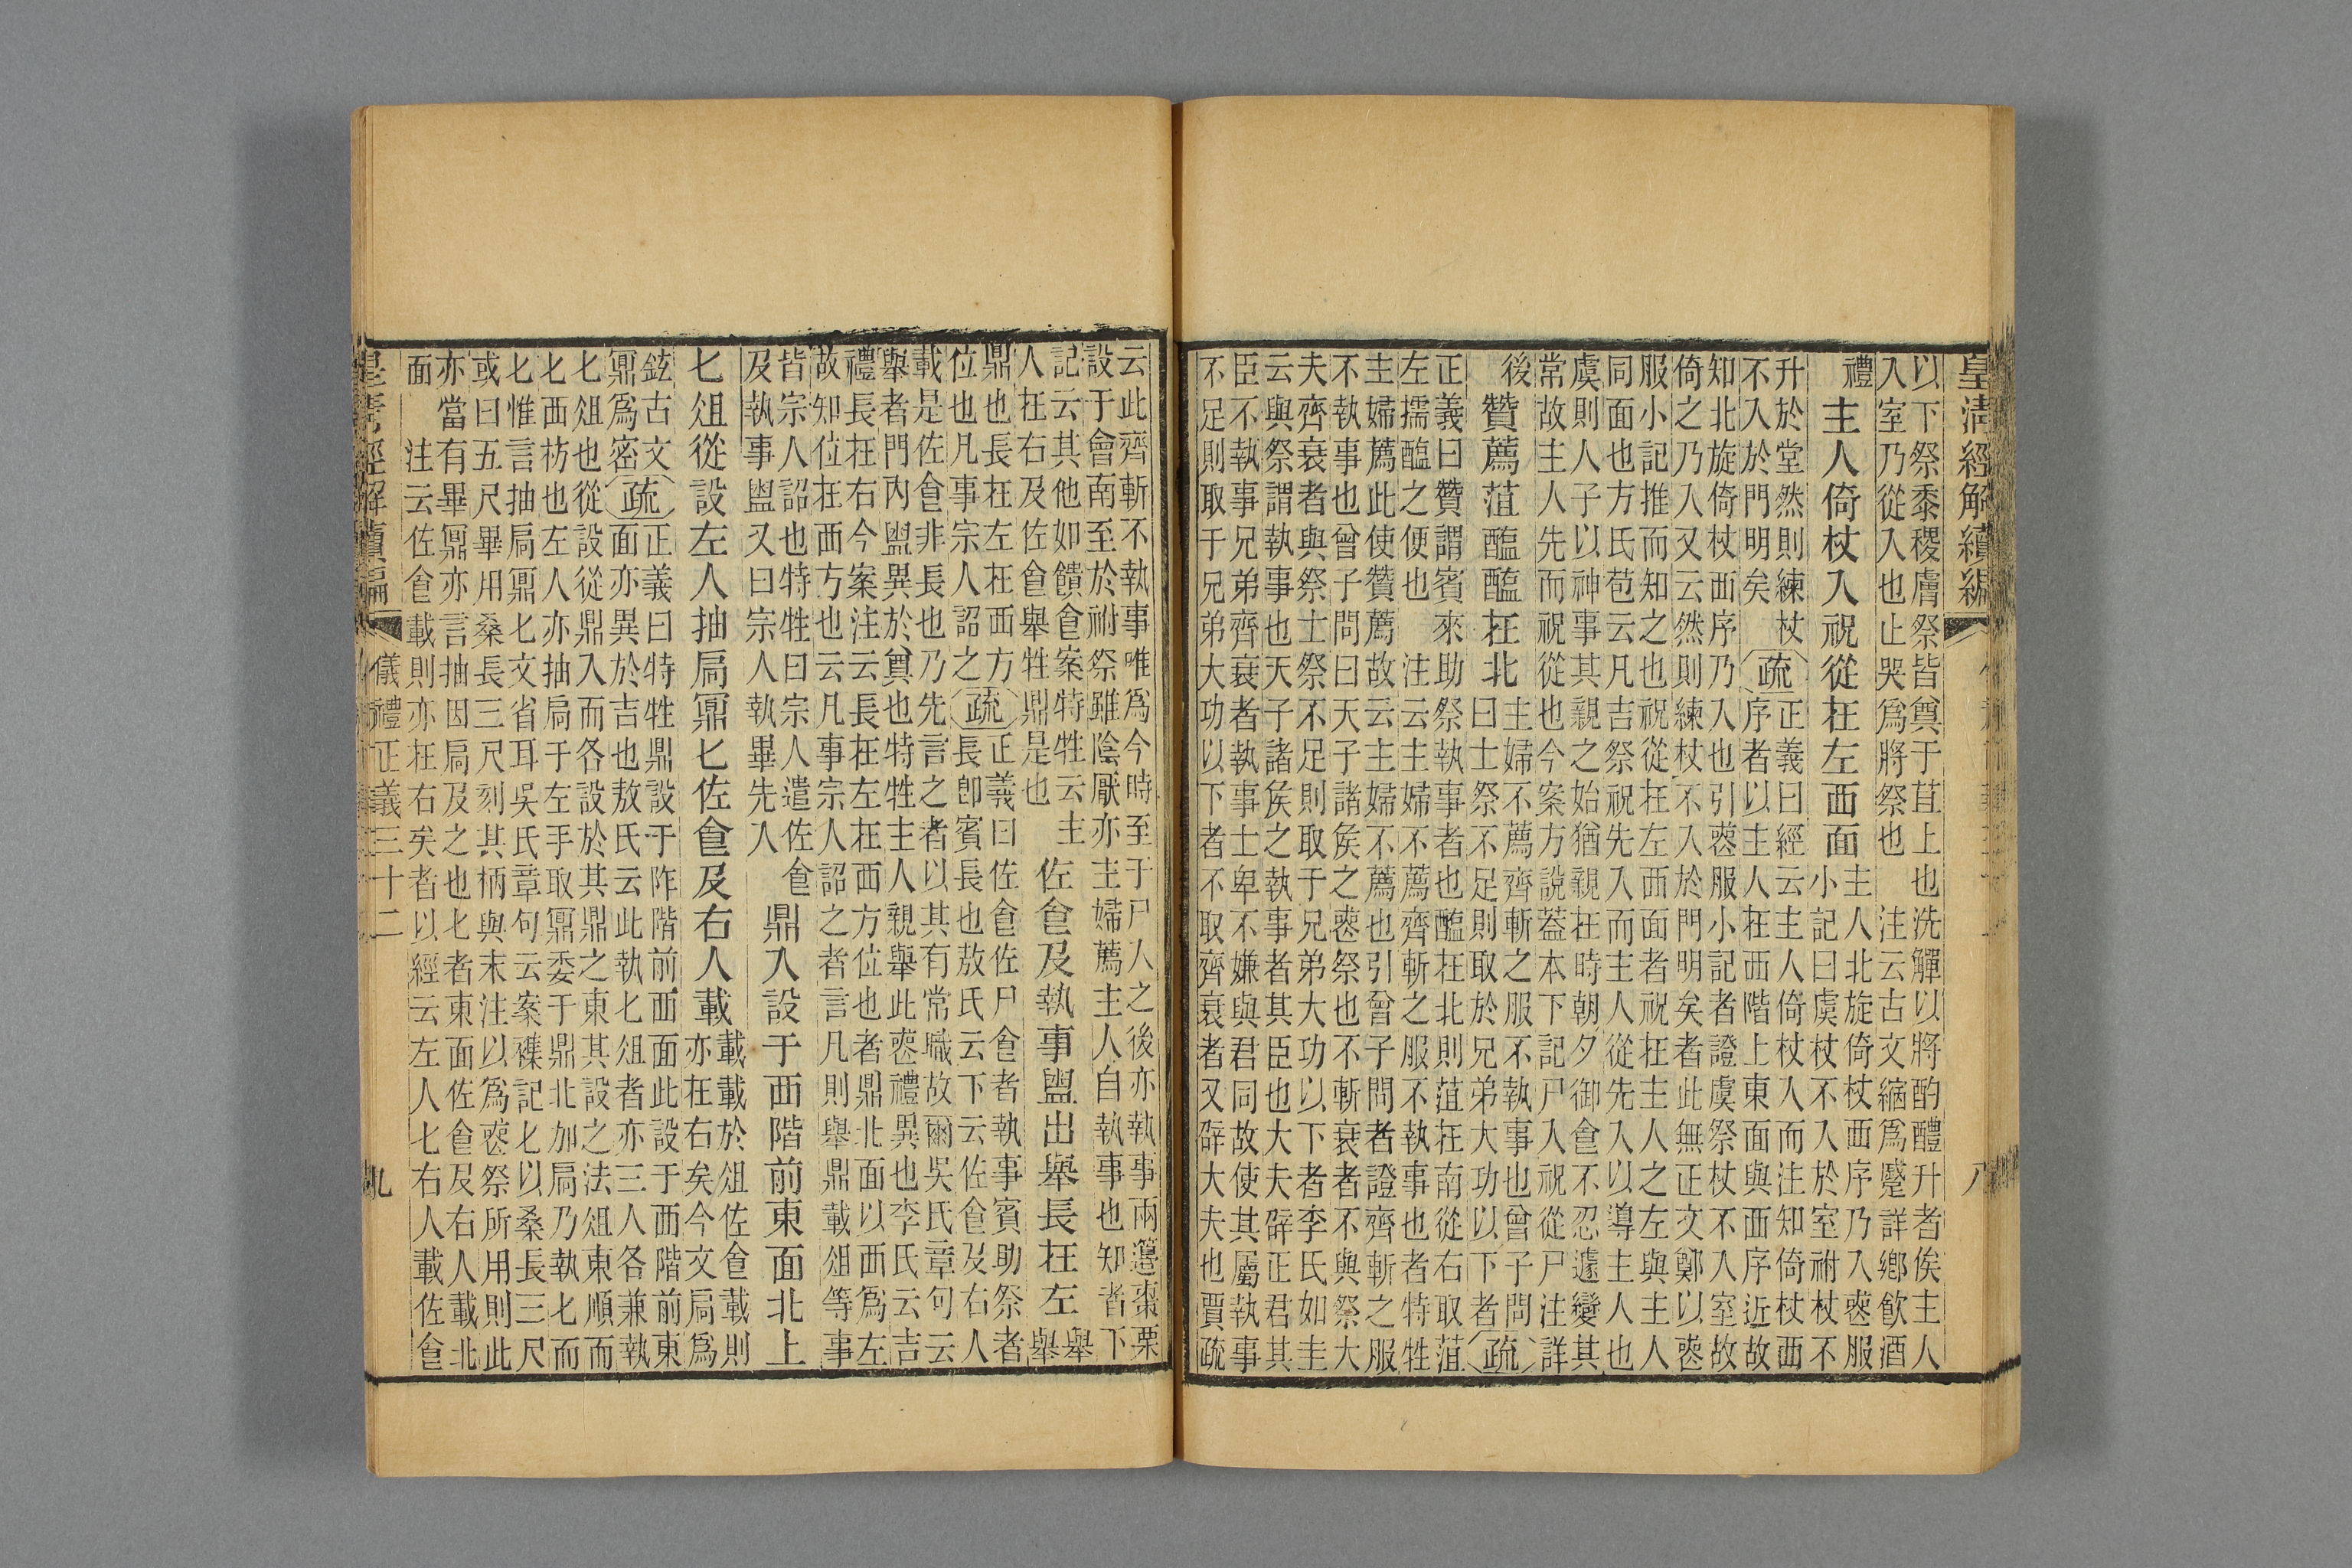 皇清經解續編 八
以下祭黍稷膚祭皆奠于苴上也洗觶以將酌醴升者俟主人
入室乃從入也止哭爲將祭也 注云古文縮爲蹙詳鄉飲酒
禮 主人倚杖入祝從在左西面 主人北旋倚杖西序乃入喪服
小記曰虞杖不入於室祔杖不
升於堂然則練杖
不入於門明矣 疏 正義曰經云主人倚杖入而注知倚杖西
序者以主人在西階上東面與西序近故
知北旋倚杖面序乃入也引喪服小記者證虞祭杖不入室故
倚之乃入又云然則練杖不入於門明矣者此無正文鄭以喪
服小記推而知之也祝從在左西面者祝在主人之左與主人
同面也方氏苞云凡吉祭祝先入而主人從先入以導主人也
虞則人子以神事其親之始猶親在時朝夕御食不忍遽變其
常故主人先而祝從也今案方說蓋本下記尸入祝從尸注詳
後 贊薦菹醢醢在北 主婦不薦齊斬之服不執事也曾子問
曰士祭不足則取於兄弟大功以下者 疏
正義曰贊謂賓來助祭執事者也醢在北則菹在南從右取菹
左擩醢之便也 注云主婦不薦齊斬之服不執事也者特牲
主婦薦此使贊薦故云主婦不薦也引曾子問者證齊斬之服
不執事也曾子問曰天子諸侯之喪祭也不斬衰者不與祭大
夫齊衰者與祭士祭不足則取于兄弟大功以下者李氏如圭
云與祭謂執事也天子諸侯之執事者其臣也大夫辟正君其
臣不執事兄弟齊衰者執事士卑不嫌與君同故使其屬執事
不足則取于兄弟大功以下者不取齊衰者又辟大夫也賈疏
云此齊斬不執事唯爲今時至于尸入之後亦執事兩籩棗栗
設于會南至於祔祭雖陰厭亦主婦薦主人自執事也知者下
記云其他如饋食案特牲云主
人在右及佐食舉牲鼎是也 佐食及執事盥出舉長在左 舉
舉
鼎也長在左在西方
位也凡事宗人詔之 疏 正義曰佐食佐尸食者執事賓助祭者
長卽賓長也敖氏云下云佐食及右人
載是佐食非長也乃先言之者以其有常職故爾吳氏章句云
舉者門內盥異於奠也特牲主人親舉此喪禮異也李氏云吉
禮長在右今案注云長在左在西方位也者鼎北面以西爲左
故知位在西方也云凡事宗人詔之者言凡則舉鼎載俎等事
皆宗人詔也特牲曰宗人遣佐食
及執事盥又曰宗人執畢先入 鼎入設于西階前東面北上
匕俎從設左人抽扃鼏匕佐食及右人載 載載於俎佐食載則
亦在右矣今文扃爲
鉉古文
鼏爲密 疏 正義曰特牲鼎設于阼階前西面此設于西階前東
面亦異於吉也敖氏云此執匕俎者亦三人各兼執
匕俎也從設從鼎入而各設於其鼎之東其設之法俎東順而
匕西枋也左人亦抽扃于左手取鼏委于鼎北加扃乃執匕而
匕惟言抽扃鼏匕文省耳吳氏章句云案襍記匕以桑長三尺
或曰五尺畢用桑長三尺刻其柄與末注以爲喪祭所用則此
亦當有畢鼏亦言抽因扃及之也匕者東面佐食及右人載北
面 注云佐食載則亦在右矣者以經云左人匕右人載佐食
皇清經解續編 儀禮正義三十二 九